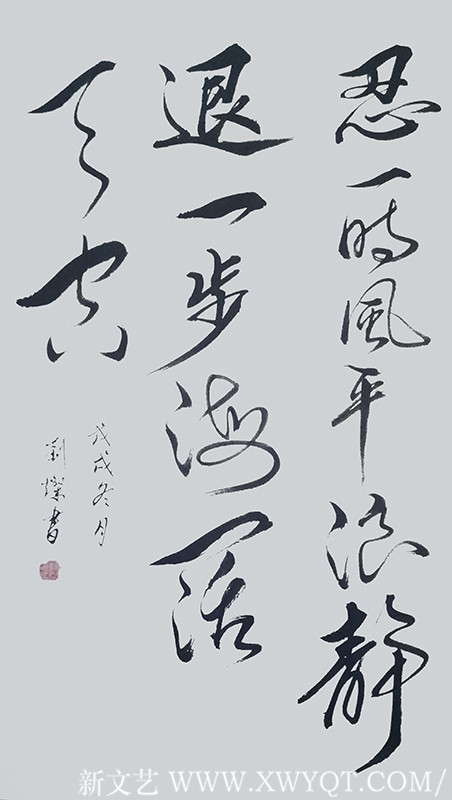 忍一時風平浪靜
退一步海闊
天空
戊戌冬月
劉燦書
新文艺 WWW.XWYQT.COM/